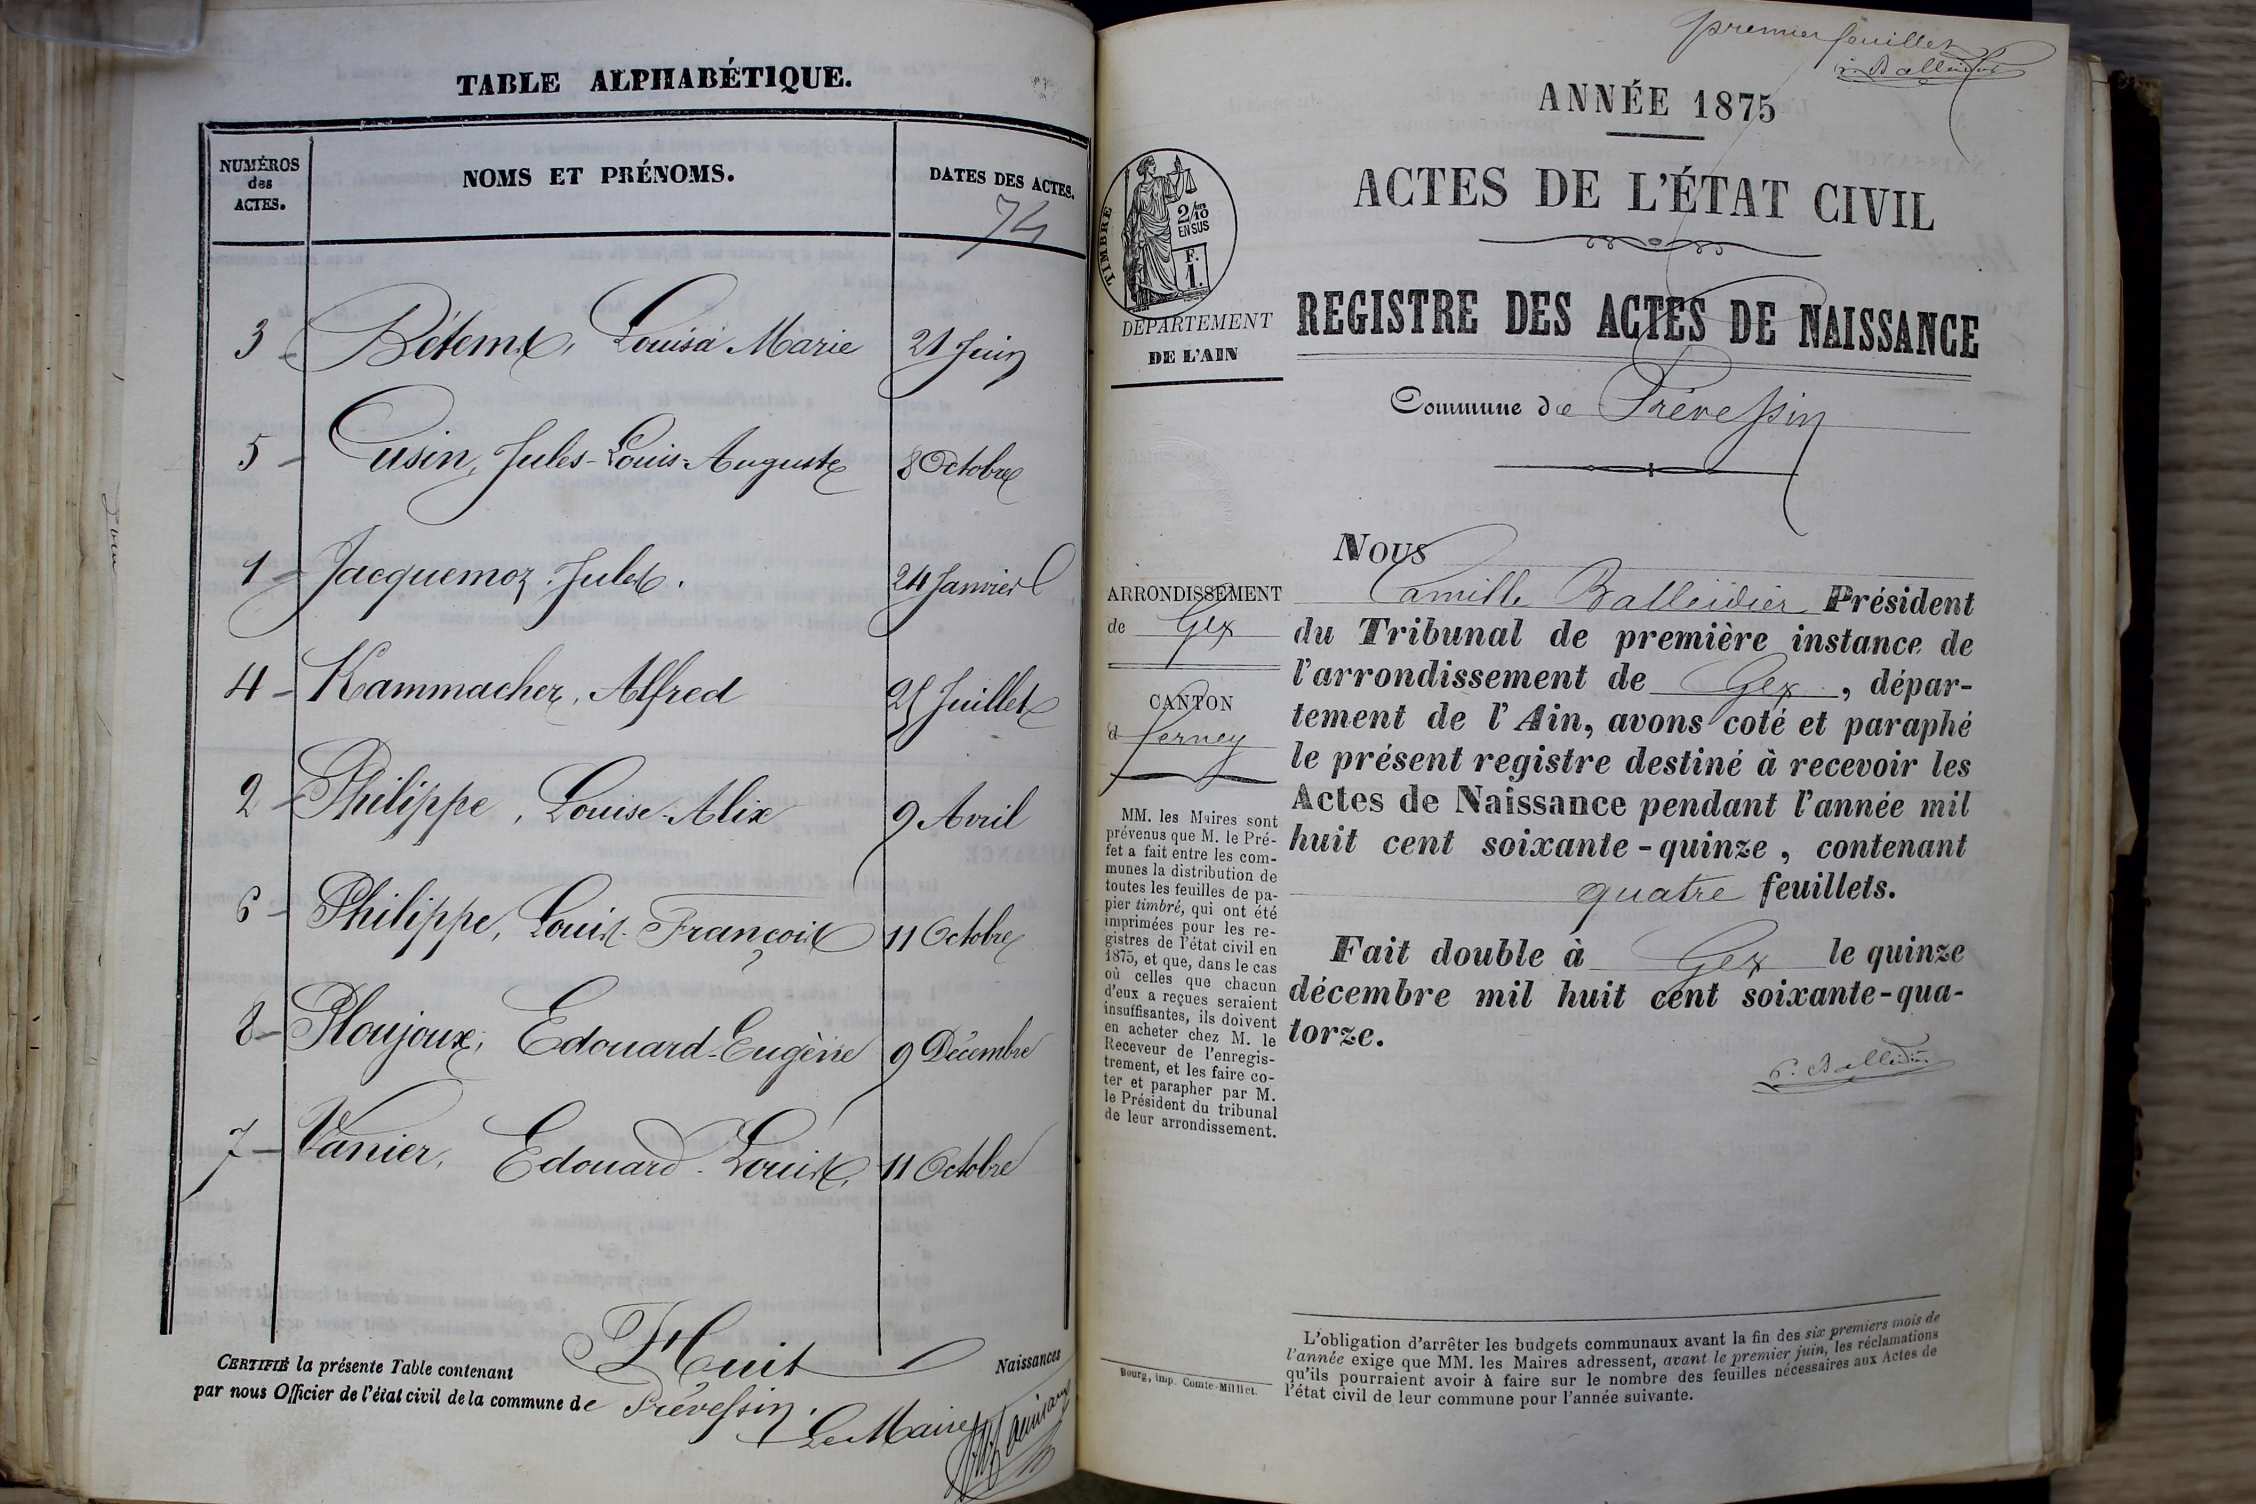 TABLE ALPHABÉTIQUE.
NUMÉROS
des
ACTES.
NOMS ET PRÉNOMS.
DATES DES ACTES.
74
3 Bétemx, Louisa Marie 21 Juin
5 Cusin, Jules-Louis-Auguste 8 Octobre
1 Jacquemoz, Jules. 24 Janvier
4 Kammacher, Alfred 25 Juillet
2 Philippe, Louise-Alix 9 Avril
6 Philippe, Louis-François 11 Octobre
8 Ploujoux, Edouard-Eugène 9 Décembre
7 Vanier, Edouard-Louis, 11 Octobre
CERTIFIÉ la présente Table contenant Huit Naissances
par nous Officier de l'état civil de la commune de Prévessin.
Le Maire
premier feuillet
C. Balleidier
ANNÉE 1875
ACTES DE L'ÉTAT CIVIL
TIMBRE
2/10
EN SUS
F.
1.
DÉPARTEMENT
DE L'AIN
REGISTRE DES ACTES DE NAISSANCE
Commune de Prévessin
ARRONDISSEMENT
de Gex
CANTON
d Ferney
MM. les Maires sont
prévenus que M. le Pré-
fet a fait entre les com-
munes la distribution de
toutes les feuilles de pa-
pier timbré, qui ont été
imprimées pour les re-
gistres de l'état civil en
1875, et que, dans le cas
où celles que chacun
d'eux a reçues seraient
insuffisantes, ils doivent
en acheter chez M. le
Receveur de l'enregis-
trement, et les faire co-
ter et parapher par M.
le Président du tribunal
de leur arrondissement.
Nous
Camille Balleidier Président
du Tribunal de première instance de
l'arrondissement de Gex, dépar-
tement de l'Ain, avons coté et paraphé
le présent registre destiné à recevoir les
Actes de Naissance pendant l'année mil
huit cent soixante-quinze, contenant
quatre feuillets.
Fait double à Gex le quinze
décembre mil huit cent soixante-qua-
torze.
C. Balleidier
Bourg, imp. Comte-Milliet.
L'obligation d'arrêter les budgets communaux avant la fin des six premiers mois de
l'année exige que MM. les Maires adressent, avant le premier juin, les réclamations
qu'ils pourraient avoir à faire sur le nombre des feuilles nécessaires aux Actes de
l'état civil de leur commune pour l'année suivante.